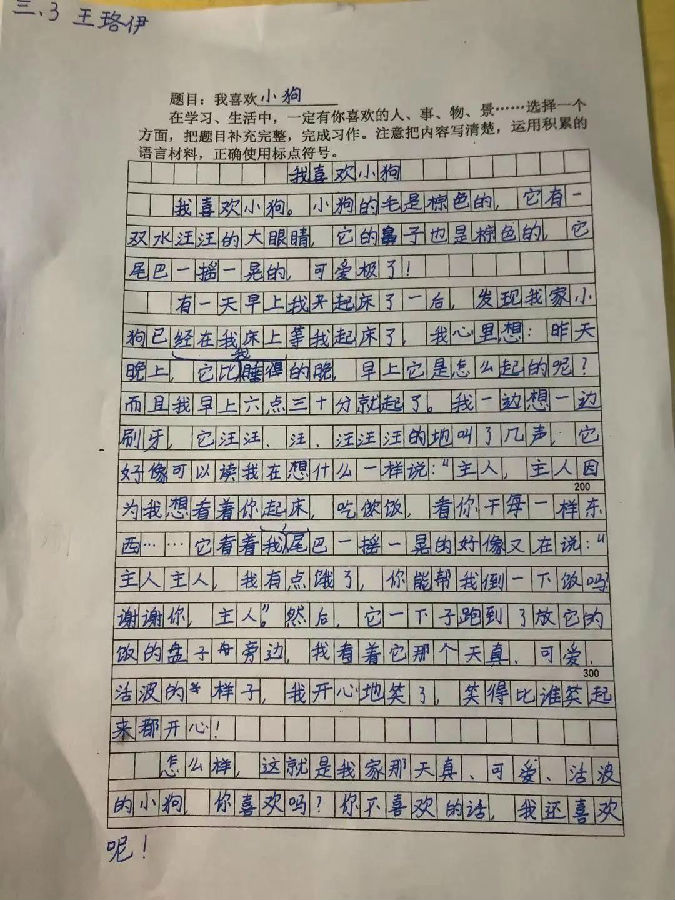 三.3 王珞伊
题目：我喜欢小狗
在学习、生活中，一定有你喜欢的人、事、物、景……选择一个
方面，把题目补充完整，完成习作。注意把内容写清楚，运用积累的
语言材料，正确使用标点符号。
我喜欢小狗
我喜欢小狗。小狗的毛是棕色的，它有一
双水汪汪的大眼睛，它的鼻子也是棕色的，它
尾巴一摇一晃的，可爱极了！
有一天早上我来起床了一后，发现我家小
狗已经在我床上等我起床了，我心里想：昨天
晚上，它比我睡得的晚，早上它是怎么起的呢？
而且我早上六点三十分就起了。我一边想一边
刷牙，它汪汪、汪、汪汪汪的叫了几声，它
好像可以读我在想什么一样说：“主人，主人因
200
为我想看着你起床，吃饮饭，看你干每一样东
西……它看着我尾巴一摇一晃的好像又在说：“
主人主人，我有点饿了，你能帮我倒一下饭吗
谢谢你，主人”。然后，它一下子跑到了放它的
饭的盘子旁边，我看着它那个天真、可爱、
300
活波的样子，我开心地笑了，笑得比谁笑起
来都开心！
怎么样，这就是我家那天真、可爱、活波
的小狗，你喜欢吗？你不喜欢的话，我还喜欢
呢！